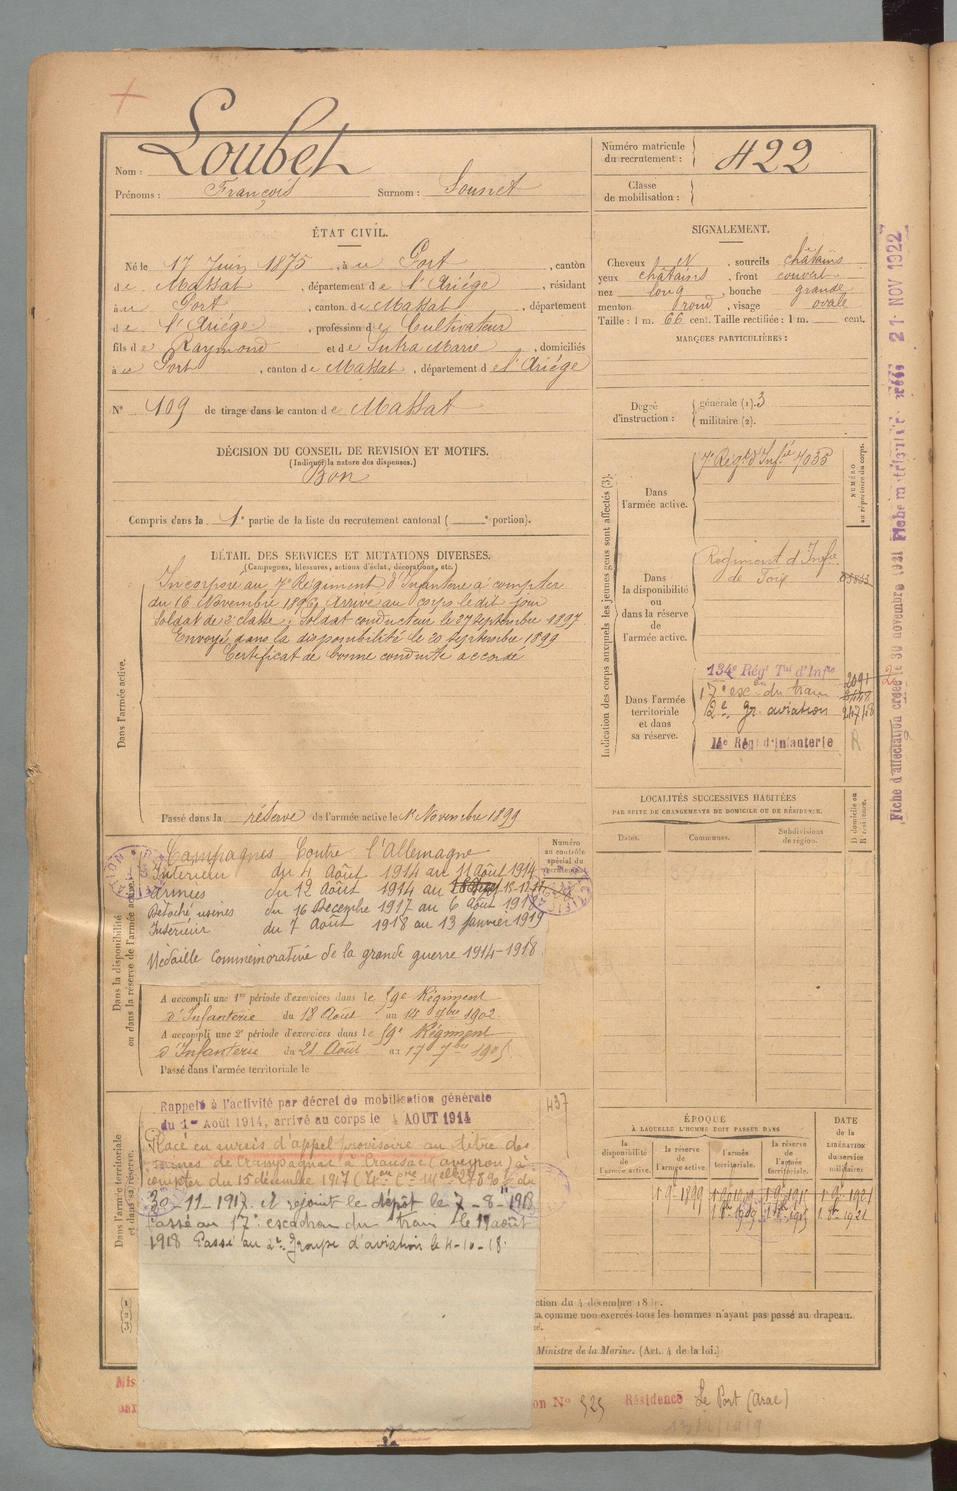 Nom : Loubet
Prénoms : François Surnom : Sounet
ÉTAT CIVIL.
Né le 17 Juin 1875, à u Port, canton
de Massat, département de l'Ariége, résidant
à u Port, canton de Massat, département
de l'Ariége, profession de Cultivateur
fils de Raymond et de Sutra Marie, domiciliés
à u Port, canton de Massat, département de l'Ariége
N° 109 de tirage dans le canton de Massat
DÉCISION DU CONSEIL DE REVISION ET MOTIFS.
(Indiquer la nature des dispenses.)
Bon
Compris dans la 1e partie de la liste du recrutement cantonal ( e portion).
DÉTAIL DES SERVICES ET MUTATIONS DIVERSES.
(Campagnes, blessures, actions d'éclat, décorations, etc.)
Dans l'armée active.
Incorporé au 7e Régiment d'Infanterie à compter
du 16 Novembre 1896, Arrivé au corps le dit jour
Soldat de 2e classe ; Soldat conducteur le 27 septembre 1897
Envoyé dans la disponibilité le 20 septembre 1899
Certificat de bonne conduite accordé
Passé dans la réserve de l'armée active le 1er Novembre 1899
Dans la disponibilité
ou dans la réserve de l'armée active.
Numéro
au contrôle
spécial du
Campagnes Contre l'Allemagne
Intérieur du 4 Août 1914 au 11 août 1914
Armées du 12 Août 1914 au 15-12-17
Détaché usines du 16 Décembre 1917 au 6 Août 1918
Intérieur du 7 Août 1918 au 13 Janvier 1919
Médaille commémorative de la grande guerre 1914-1918
A accompli une 1re période d'exercices dans le 59e Régiment
d'Infanterie du 18 Août au 14 7bre 1902
A accompli une 2e période d'exercices dans le 59e Régiment
d'Infanterie du 21 Août au 17 7bre 1905
Passé dans l'armée territoriale le
Dans l'armée territoriale
et dans sa réserve.
Rappelé à l'activité par décret de mobilisation générale
du 1er Août 1914, arrivé au corps le 4 AOUT 1914
437
Placé en sursis d'appel provisoire au titre des
de Crampagnac à Cransac (aveyron) à
compter du 15 décembre 1917
30-11-1917. et rejoint le dépôt le 7-8-1918
Passé au 17e escadron du train le 19 août
1918 Passé au 2e Groupe d'aviation le 4-10-18.
Numéro matricule
du recrutement : 422
Classe
de mobilisation :
SIGNALEMENT.
Cheveux N, sourcils châtains
yeux châtains, front couvert
nez long, bouche grande
menton rond, visage ovale
Taille : 1 m. 66 cent. Taille rectifiée : 1 m. cent.
MARQUES PARTICULIÈRES :
Degré
d'instruction :
générale (1). 3
militaire (2).
Indication des corps auxquels les jeunes gens sont affectés (3).
NUMÉRO
au répertoire du corps.
Dans
l'armée active.
7e Régt d'Infie 7035
Dans
la disponibilité
ou
dans la réserve
de
l'armée active.
Régiment d'Infie
de Foix
Dans l'armée
territoriale
et dans
sa réserve.
134e Régt Tal d'Infie 2091
17e esc. du train
2e gr. aviation
14e Régt d'Infanterie R
LOCALITÉS SUCCESSIVES HABITÉES
PAR SUITE DE CHANGEMENTS DE DOMICILE OU DE RÉSIDENCE.
Dates. Communes. Subdivisions
de région.
D domicile ou
R résidence.
ÉPOQUE
À LAQUELLE L'HOMME DOIT PASSER DANS
DATE
de la
LIBÉRATION
du service
militaire.
la
disponibilité
de
l'armée active.
la
réserve
de
l'armée active.
l'armée
territoriale.
la réserve
de
l'armée
territoriale.
1 9 1899
ction du 4 décembre
comme non exercés tous les hommes n'ayant pas passé au drapeau.
Ministre de la Marine. (Art. 4 de la loi.)
on N° 525 Résidence Le Port (Arac)
Fiche d'affectation créée le 30 novembre 1921
21 NOV 1922